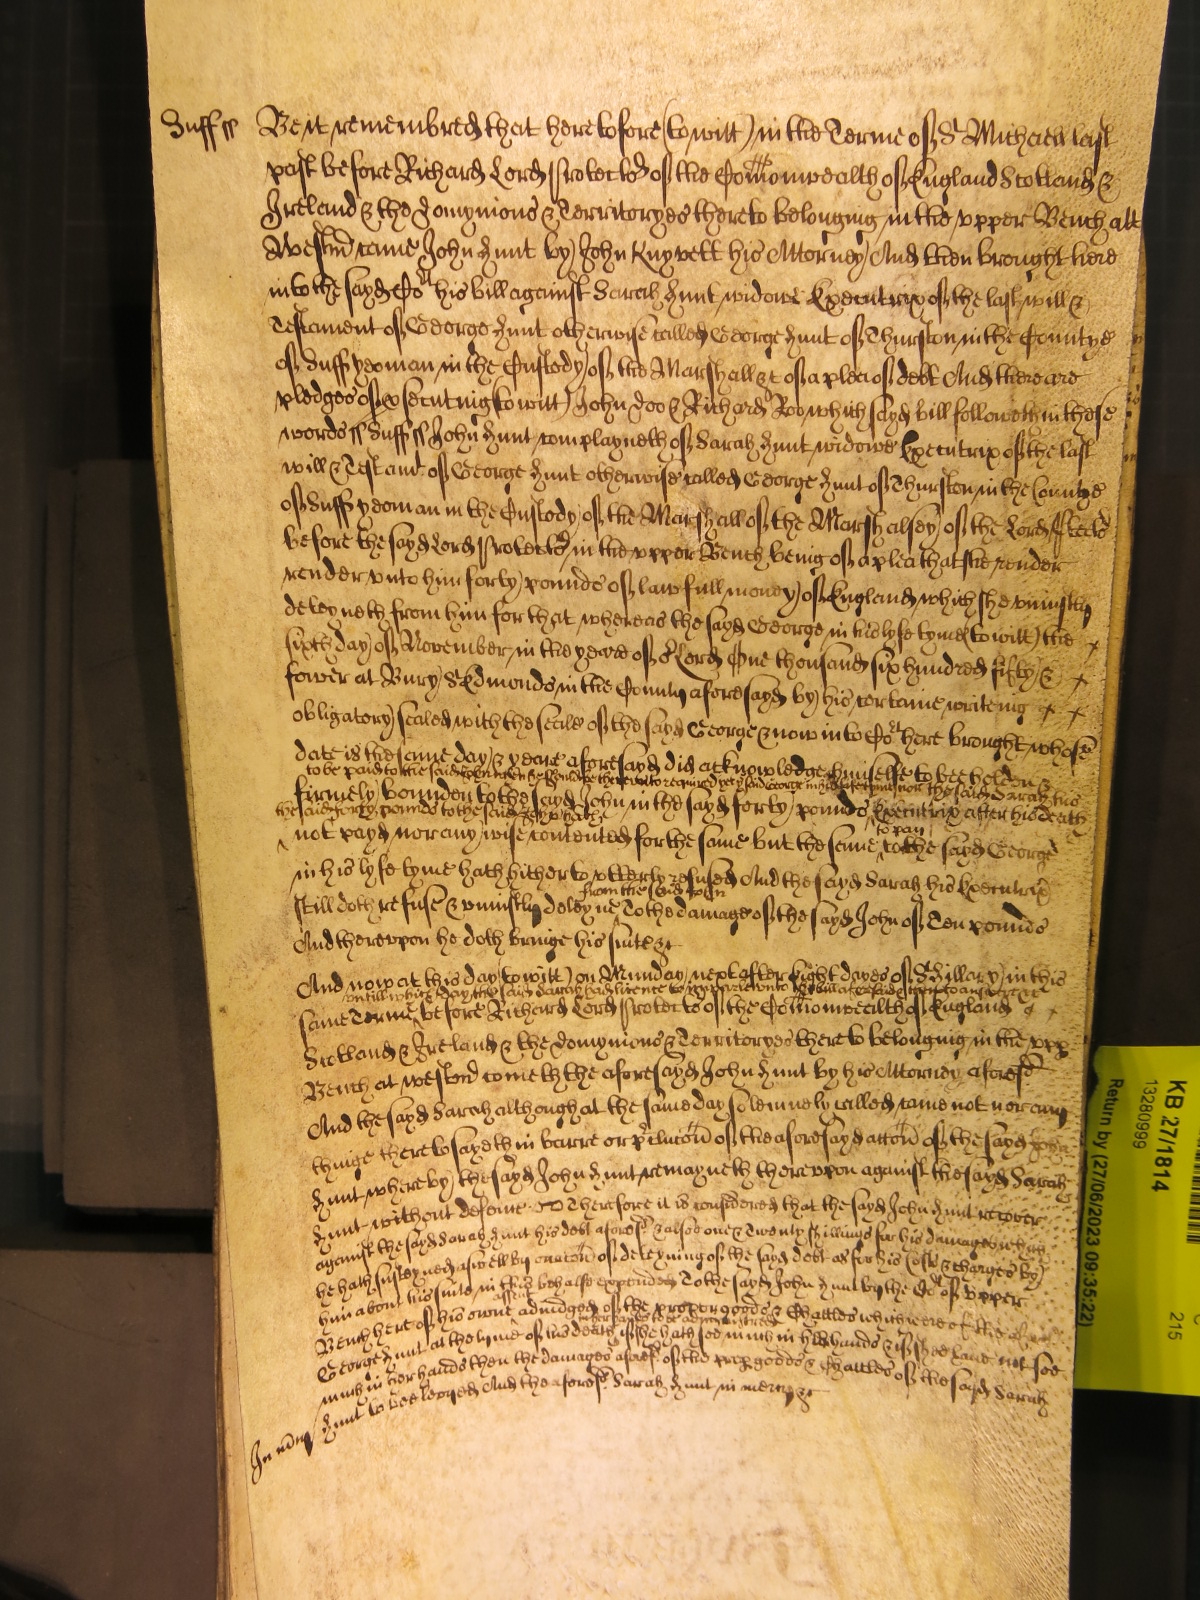 Suff ss Be it remembred that heretofore (to witt) in the Terme of St Michaell last
past before Richard Lord Protector of the Com̃onwealth of England Scotland &
Ireland & the Domynions & Territoryes thereto belonging in the vpper Bench att
Westm̃ came John Hunt by John Knyvett his Attorney And then brought here
into the sayd Cort his bill against Sarah Hunt widowe Executrix of the last will &
Testament of George Hunt otherwise called George Hunt of Thurston in the Countye
of Suff yeoman in the Custody of the Marshall &c of a plea of debt And there are
pledges of prsecuting (to witt) John Doo & Richard Roo which sayd bill followeth in these
words ss Suff ss John Hunt complayneth of Sarah Hunt widowe Executrix of the last
will & Testamt of George Hunt otherwise called George Hunt of Thurston in the Countye
of Suff yeoman in the Custody of the Marshall of the Marshalsey of the Lord Protector
before the sayd Lord Protector in the vpper Bench being of a plea that she render
render vnto him forty pounds of lawfull money of England which she vniustly
deteyneth from him for that whereas the sayd George in his lyfe tyme (to witt) the
sixth day of November in the yeare of or Lord One thousand six hundred fifty &
fower at Bury St Edmonds in the County aforesayd by his certaine writeing
obligatory sealed with the seale of the sayd George & now into Cort here brought whose
date is the same day & yeare aforesayd did acknowledge himselfe to bee holden &
to be paid to the said John when he should be therevnto required yet the said George in his lyfe tyme nor the said Sarah his
firmely bounden to the sayd John in the sayd forty pounds Executrix after his death
the said forty pounds to the said John hath
not payd nor any wise contented for the same but the same to pay to the sayd George
in his lyfe tyme hath hitherto vtterly refused And the sayd Sarah his Executrix
from the said John
still doth refuse & vniustly deteyne To the damage of the sayd John of Ten pounds
And therevpon he doth bringe his suite &c
And now at this day (to witt) on Munday next after Eight dayes of St Hillary in this
untill which day the said Sarah had licence to imparle vnto the bill aforesaid & then to answere
same Terme before Richard Lord Protector of the Com̃onwealth of England
Scotland & Ireland & the Domynions & Territoryes thereto belonging in the vpp
Bench at Westm̃ cometh the aforesayd John Hunt by his Attorney aforesd
And the sayd Sarah although at the same day solemnely called came not nor any
thinge thereto sayth in barre or preclucon of the aforesayd accon of the sayd John
Hunt whereby the sayd John Hunt remayneth therevpon against the sayd Sarah
Hunt without defence Therefore it is considered that the sayd John Hunt recover
against the sayd Sarah Hunt his debt aforesd & alsoe one & Twenty shillings for his damages which
he hath susteyned aswell by occacon of deteyning of the sayd debt as for his costs & charges by
him about his suite in this behalfe expended To the sayd John Hunt by the Cort of vpper
Bench here of his owne assent adiudged of the proper goods & Chattles which were of the
George Hunt at the tyme of his death if she hath soe much in her hands & if shee hath not soe
much in her hands then the damages aforesd of the propr goods & Chattles of the sayd Sarah
Hunt to bee levyed And the aforesd Sarah Hunt in mercy &c
In mcy
KB 27/1814
13280999
215
Return by (27/06/2023 09:35:22)